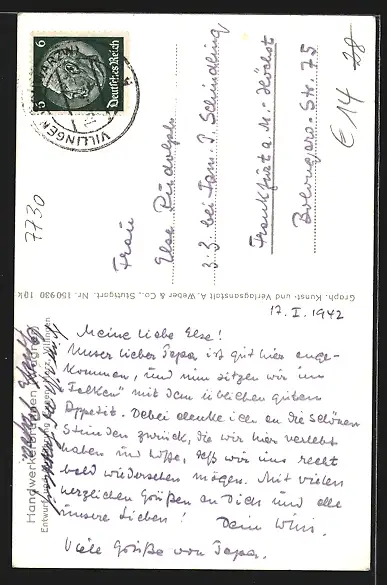 6 6
Deutsches Reich
VILLINGEN
€ 14 28
7730
Frau
Else Rudolph
z. Z. bei Fam. P. Schindling
Frankfurt a. M.-Höchst
Bolongaro-Str. 75
Graph. Kunst- und Verlagsanstalt A. Weber & Co., Stuttgart. Nr. 150930 10 k
Handwerkerbrunnen
Entwurf
17. I. 1942
Meine liebe Else!
Unser lieber Papa ist gut hier ange-
kommen, und nun sitzen wir im
"Falken" mit dem üblichen guten
Appetit. Dabei denke ich an die schönen
Stunden zurück, die wir hier verlebt
haben und hoffe, daß wir uns recht
bald wiedersehen mögen. Mit vielen
herzlichen Grüßen an Dich und alle
unsere Lieben! Dein Willi.
Viele Grüße von Papa.